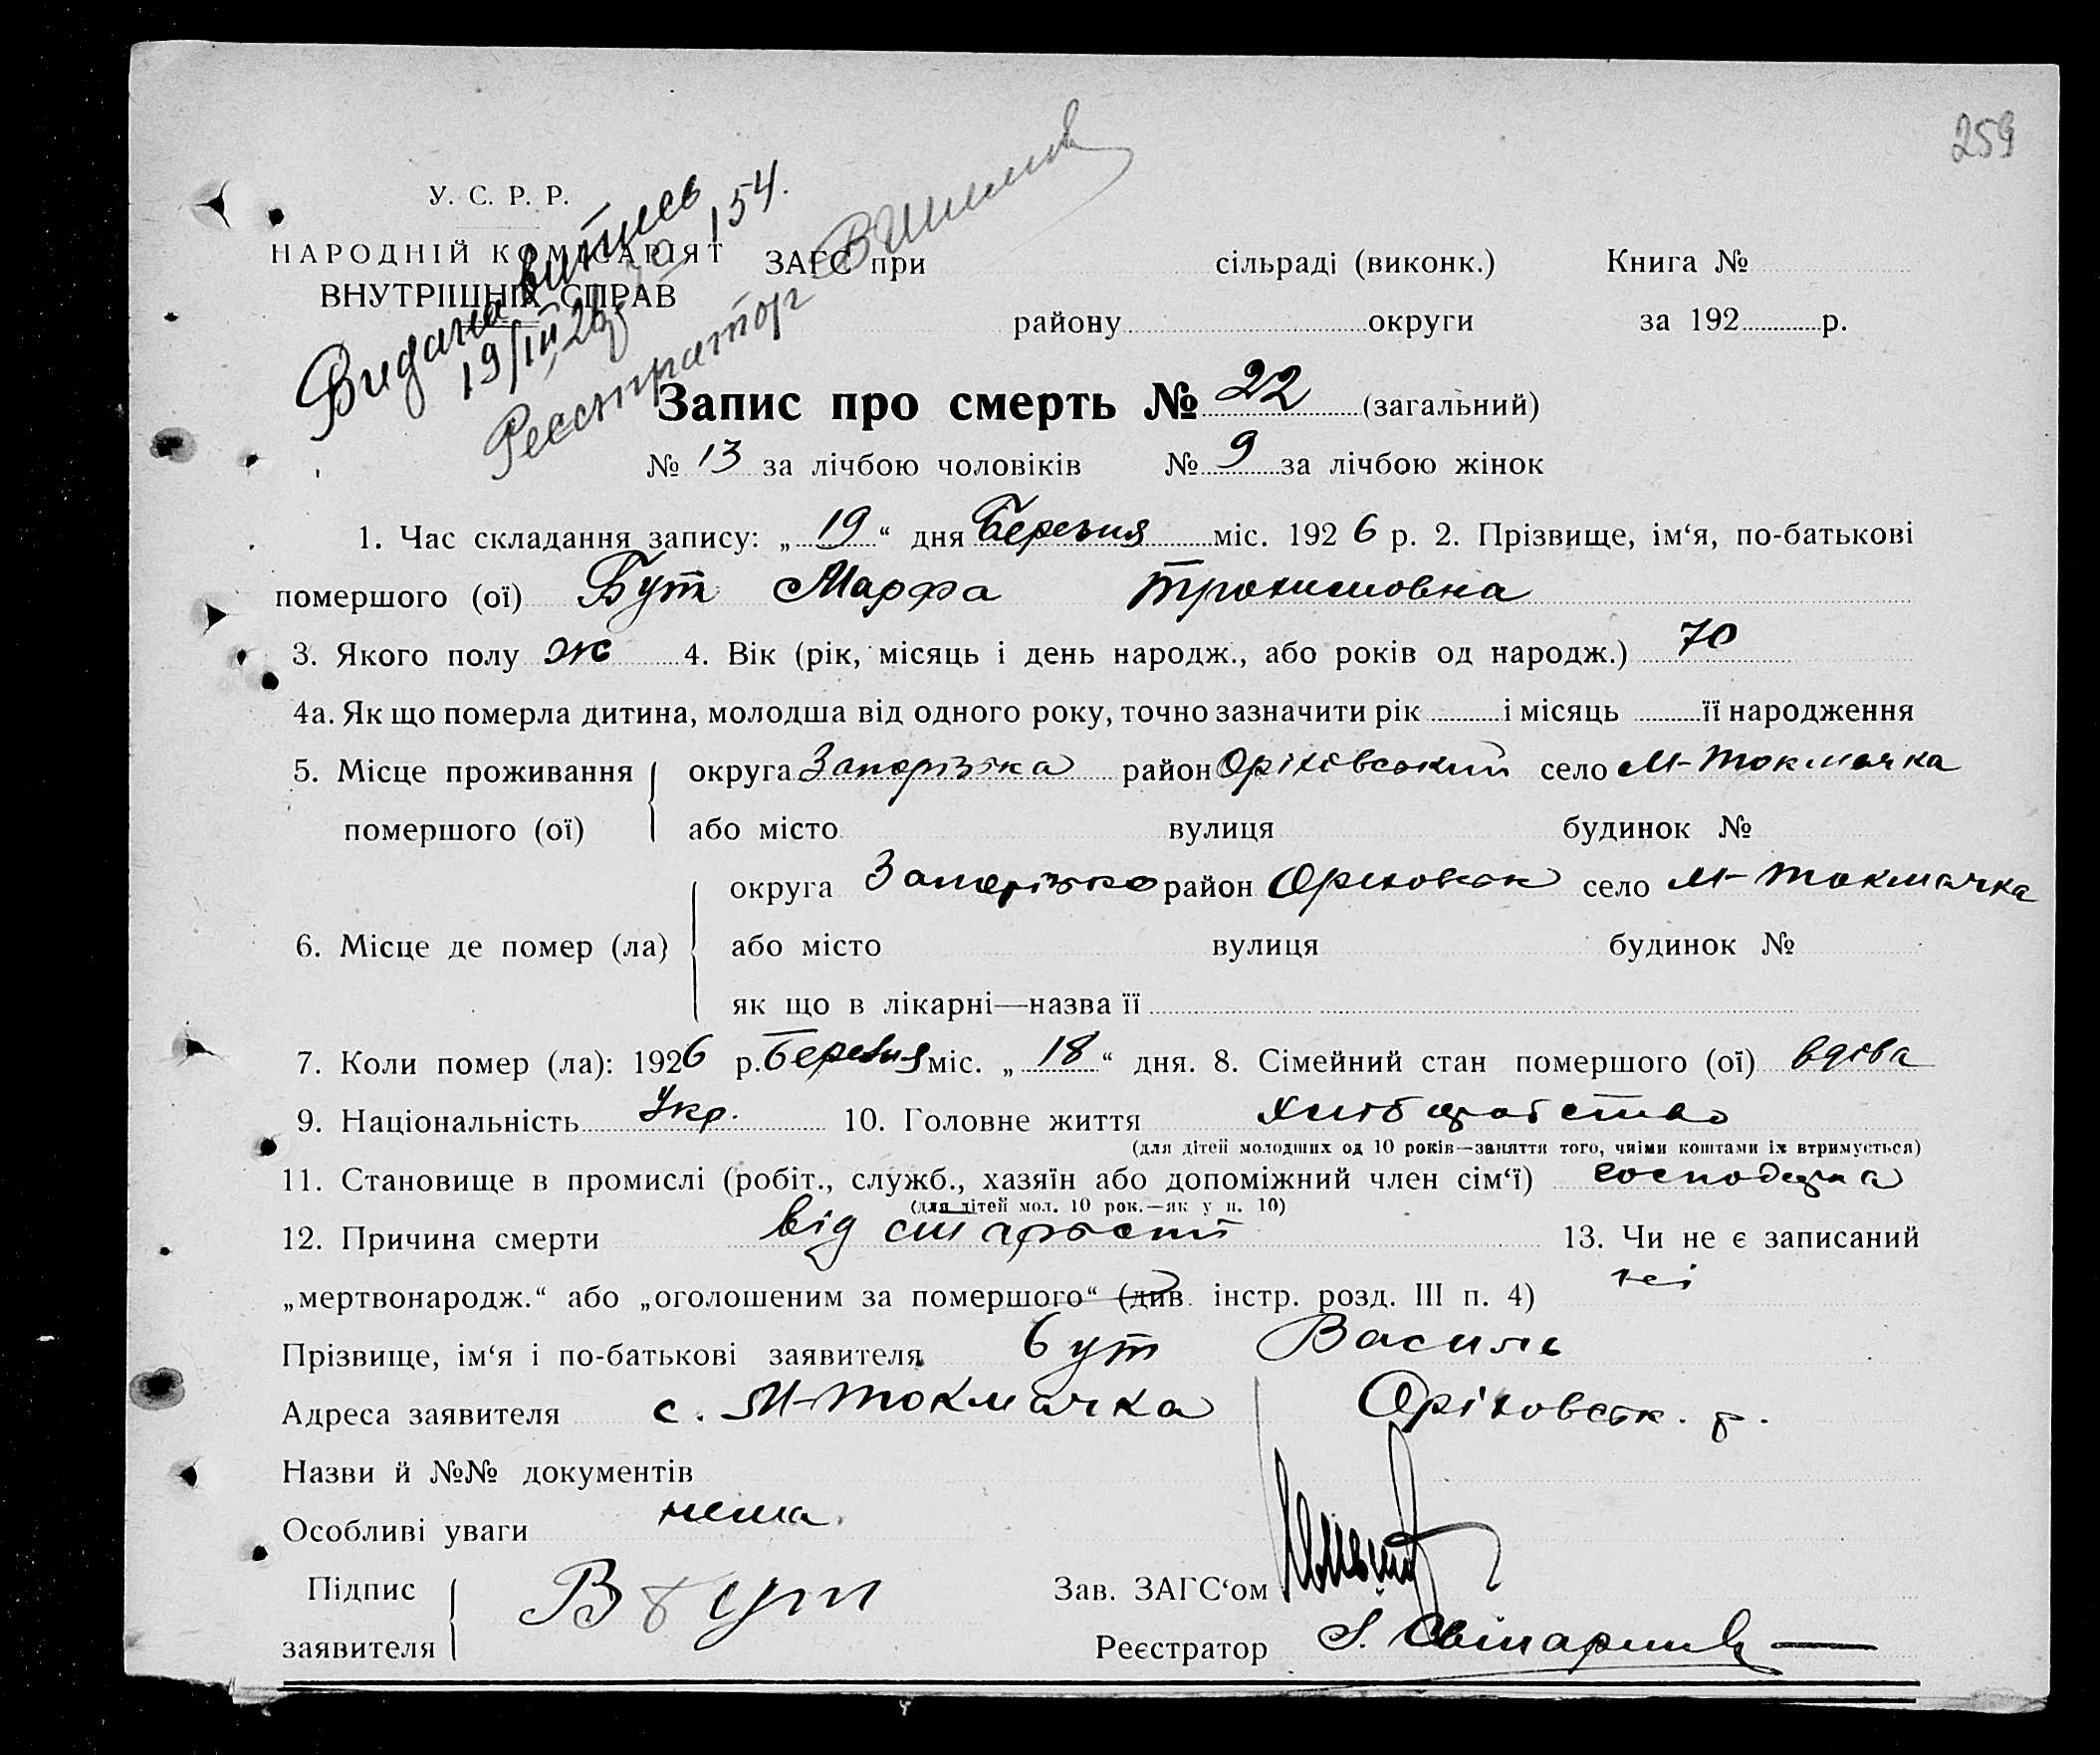 259
У. С. Р. Р.
НАРОДНІЙ КОМІСАРІЯТ
ВНУТРІШНІХ СПРАВ
Видана витись
19/III 26 р. № 154.
Реєстратор
ЗАГС при сільраді (виконк.) Книга №
району округи за 192 р.
Запис про смерть № 22 (загальний)
№ 13 за лічбою чоловіків № 9 за лічбою жінок
1. Час складання запису: „ 19 “ дня Березня міс. 1926 р. 2. Прізвище, ім‘я, по-батькові
помершого (ої) Бут Марфа Трохимовна
3. Якого полу ж 4. Вік (рік, місяць і день народж., або років од народж.) 70
4а. Як що померла дитина, молодша від одного року, точно зазначити рік і місяць її народження
5. Місце проживання округа Запорізька район Оріховський село М-Токмачка
помершого (ої) або місто вулиця будинок №
округа Запорізько район Ориховськ село М-Токмачка
6. Місце де помер (ла) або місто вулиця будинок №
як що в лікарні—назва її
7. Коли помер (ла): 1926 р. Березня міс. „ 18 “ дня. 8. Сімейний стан помершого (ої) вдова
9. Національність Укр. 10. Головне життя хліборобство
(для дітей молодших од 10 років—заняття того, чиїми коштами їх втримується)
11. Становище в промислі (робіт., служб., хазяїн або допоміжний член сім‘ї) господарка
(для дітей мол. 10 рок.—як у п. 10)
12. Причина смерти від старости 13. Чи не є записаний
„мертвонародж.“ або „оголошеним за помершого“ (див. інстр. розд. III п. 4) ні
Прізвище, ім‘я і по-батькові заявителя Бут Василь
Адреса заявителя с. М-Токмачка Оріховськ. р.
Назви й №№ документів
Особливі уваги нема
Підпис заявителя В Бут Зав. ЗАГС‘ом
Реєстратор